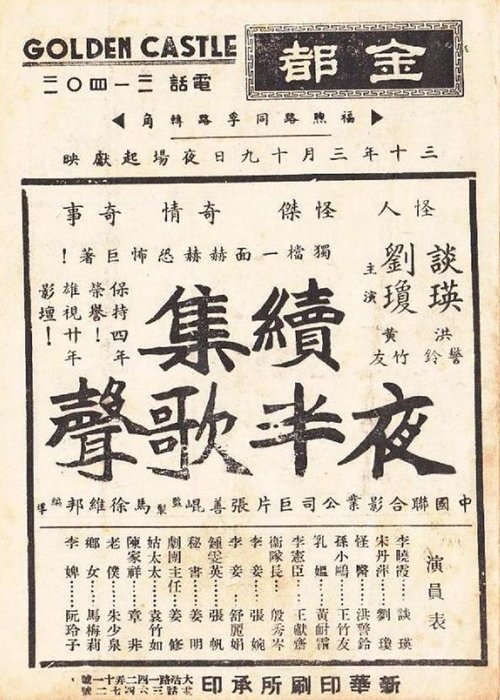 GOLDEN CASTLE
金都
電話
福煦路同孚路轉角
三十年三月十九日夜場起獻映
怪人 怪傑 奇情 奇事
獨檔一面赫赫恐怖巨著！
談瑛
劉瓊
主演
洪警鈴
黃竹友
保持四年
榮譽！
雄視廿年
影壇！
續集
夜半歌聲
中國聯合影業公司巨片張善崐監製馬徐維邦編導
演員表
李曉霞……談瑛
宋丹萍……劉瓊
怪醫……洪警鈴
孫小鷗……王竹友
乳媼……黃耐霜
李憲臣……王獻齋
衛隊長……殷秀岑
李妾……張婉
李妾……舒麗娟
鍾雯英……張帆
秘書……姜明
劇團主任……姜修
姑太太……袁竹如
陳家祥……章非
老僕……朱少泉
鄉女……馬梅莉
李婢……阮玲子
新華印刷所承印